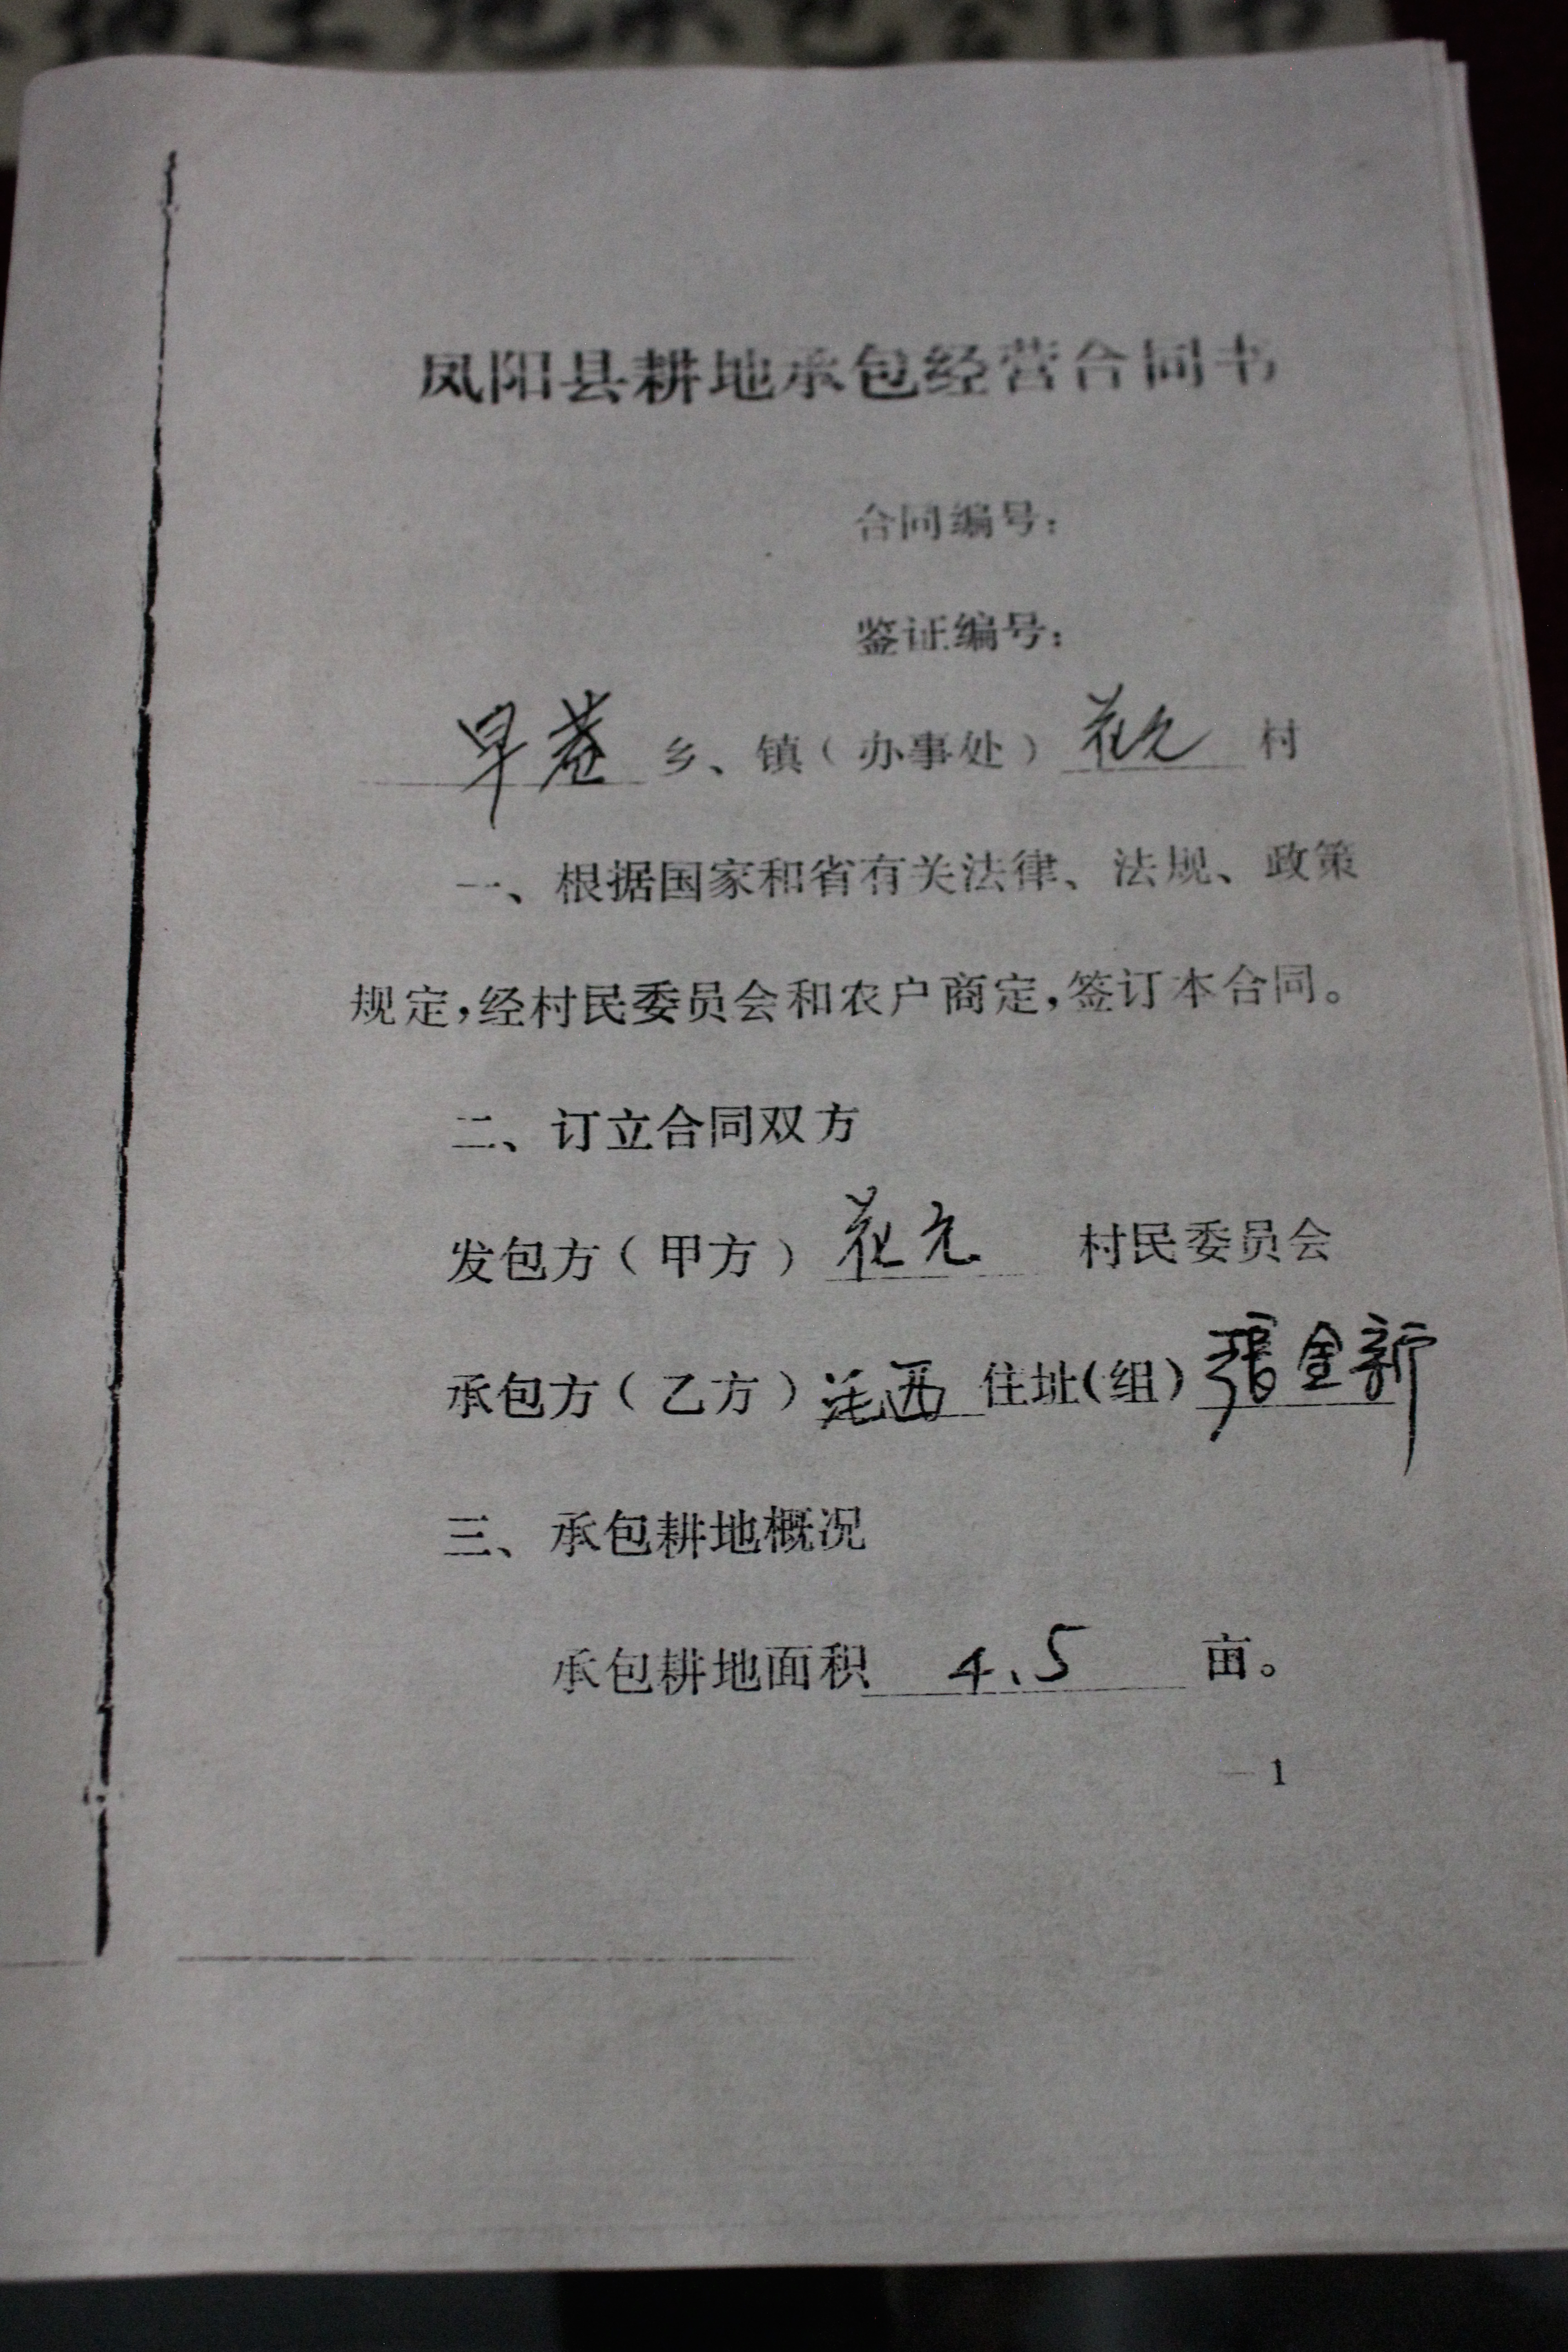 土地承包合同书
凤阳县耕地承包经营合同书
合同编号：
鉴证编号：
早庵 乡、镇（办事处） 花元 村
一、根据国家和省有关法律、法规、政策
规定，经村民委员会和农户商定，签订本合同。
二、订立合同双方
发包方（甲方） 花元 村民委员会
承包方（乙方） 西 住址(组) 張金新
三、承包耕地概况
承包耕地面积 4.5 亩。
1